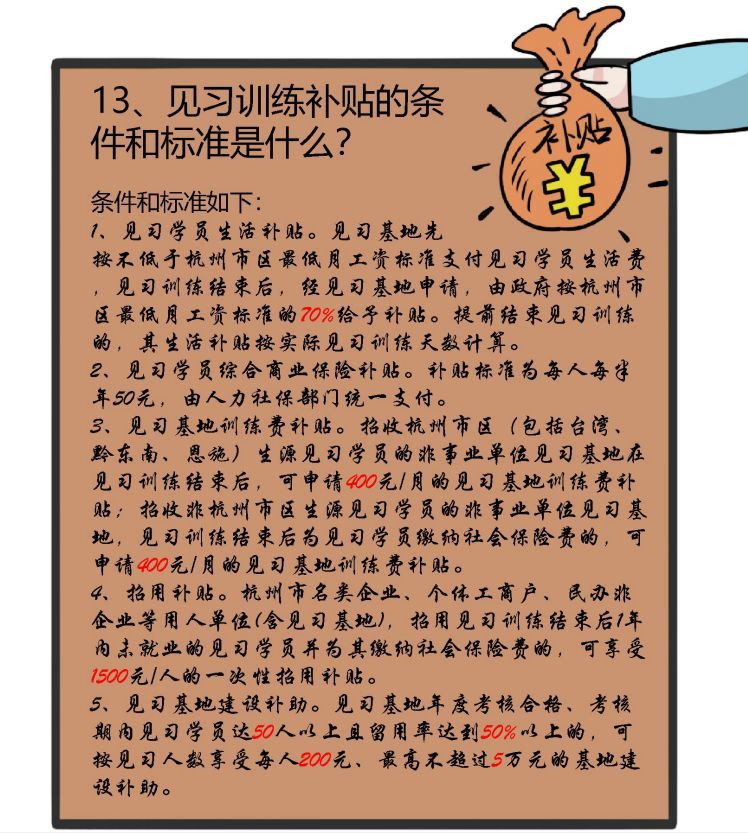 13、见习训练补贴的条
件和标准是什么？
补贴
¥
条件和标准如下：
1、见习学员生活补贴。见习基地先
按不低于杭州市区最低月工资标准支付见习学员生活费
，见习训练结束后，经见习基地申请，由政府按杭州市
区最低月工资标准的70%给予补贴。提前结束见习训练
的，其生活补贴按实际见习训练天数计算。
2、见习学员综合商业保险补贴。补贴标准为每人每半
年50元，由人力社保部门统一支付。
3、见习基地训练费补贴。招收杭州市区（包括台湾、
黔东南、恩施）生源见习学员的非事业单位见习基地在
见习训练结束后，可申请400元/月的见习基地训练费补
贴；招收非杭州市区生源见习学员的非事业单位见习基
地，见习训练结束后为见习学员缴纳社会保险费的，可
申请400元/月的见习基地训练费补贴。
4、招用补贴。杭州市各类企业、个体工商户、民办非
企业等用人单位(含见习基地)，招用见习训练结束后1年
内未就业的见习学员并为其缴纳社会保险费的，可享受
1500元/人的一次性招用补贴。
5、见习基地建设补助。见习基地年度考核合格、考核
期内见习学员达50人以上且留用率达到50%以上的，可
按见习人数享受每人200元、最高不超过5万元的基地建
设补助。